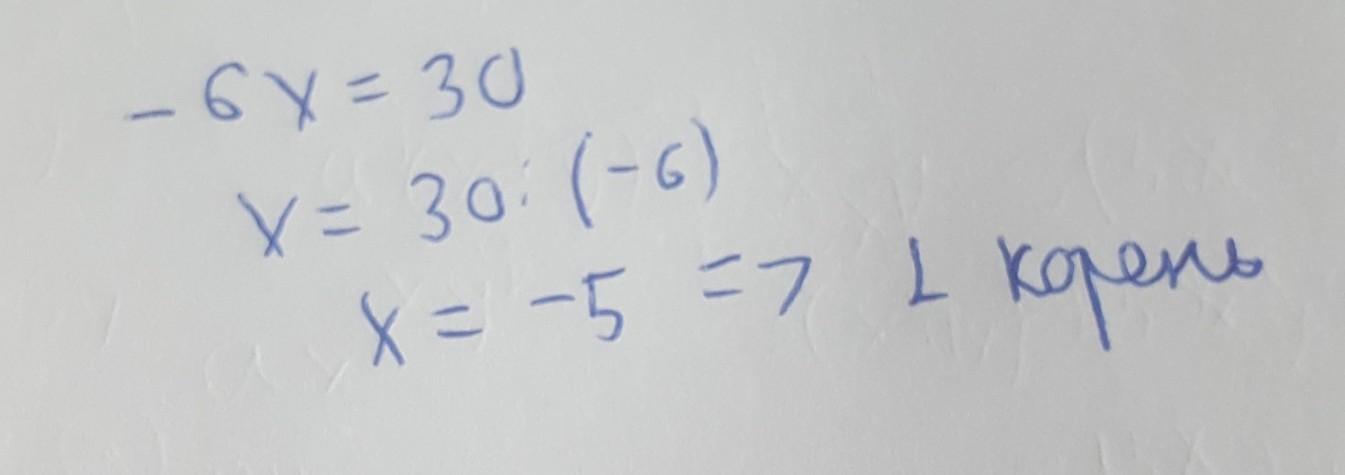 -6x = 30
x = 30 : (-6)
x = -5 => 1 корень